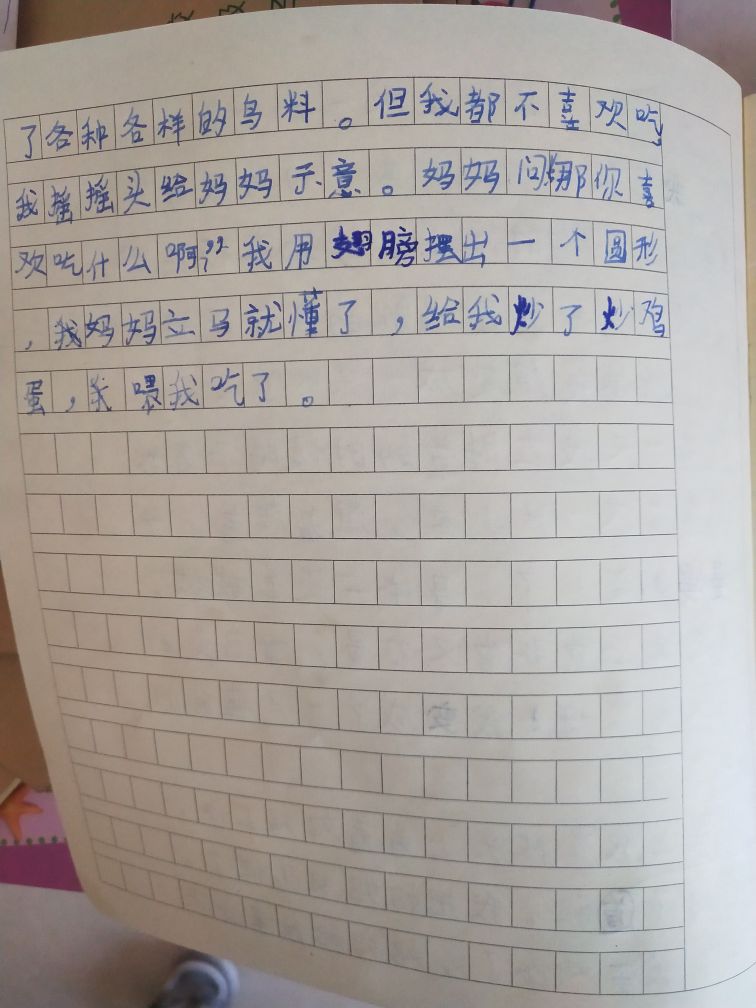 了各种各样的鸟料。但我都不喜欢吃,
我摇摇头给妈妈示意。妈妈问:"那你喜
欢吃什么啊?"我用翅膀摆出一个圆形
,我妈妈立马就懂了,给我炒了炒鸡
蛋,我喂我吃了。